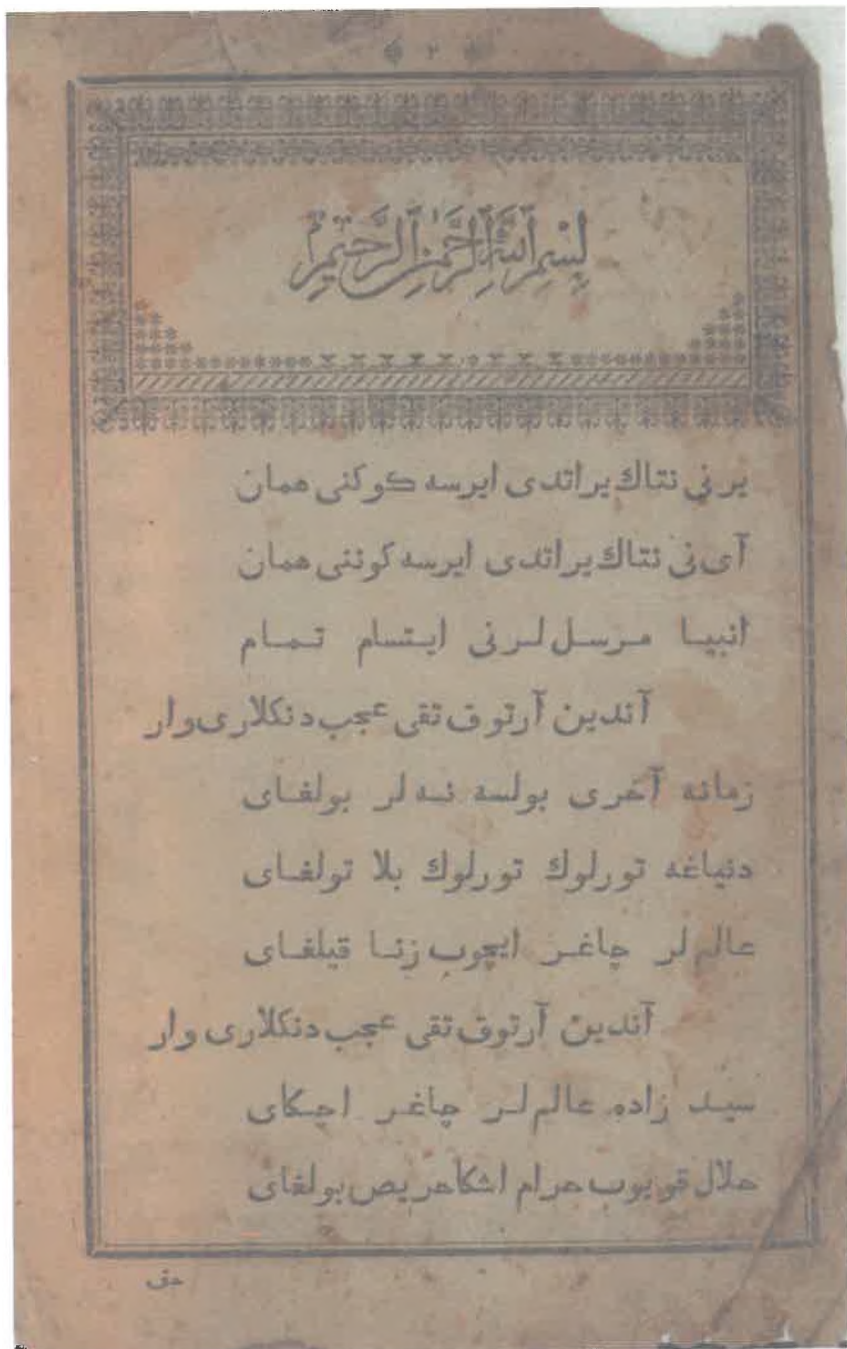 ٢
بِسْمِ ٱللَّٰهِ ٱلرَّحْمٰنِ ٱلرَّحِيمِ
یرنی نتاك یراتدی ایرسه كوكنی همان
آی نی نتاك یراتدی ایرسه كوننی همان
انبیا مرسل لرنی ایتسام تمام
آندین آرتوق تقی عجب دنكلاری وار
زمانه آخری بولسه نه لر بولغای
دنیاغه تورلوك تورلوك بلا تولغای
عالم لر چاغر ایچوب زنا قیلغای
آندین آرتوق تقی عجب دنكلاری وار
سید زاده عالم لر چاغر اچكای
حلال قویوب حرام اشكا حریص بولغای
حق